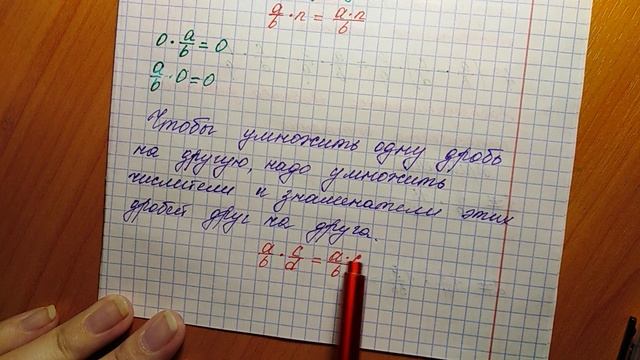 a/b · n = a·n/b
0 · a/b = 0
a/b · 0 = 0
Чтобы умножить одну дробь
на другую, надо умножить
числители и знаменатели этих
дробей друг на друга.
a/b · c/d = a·/b